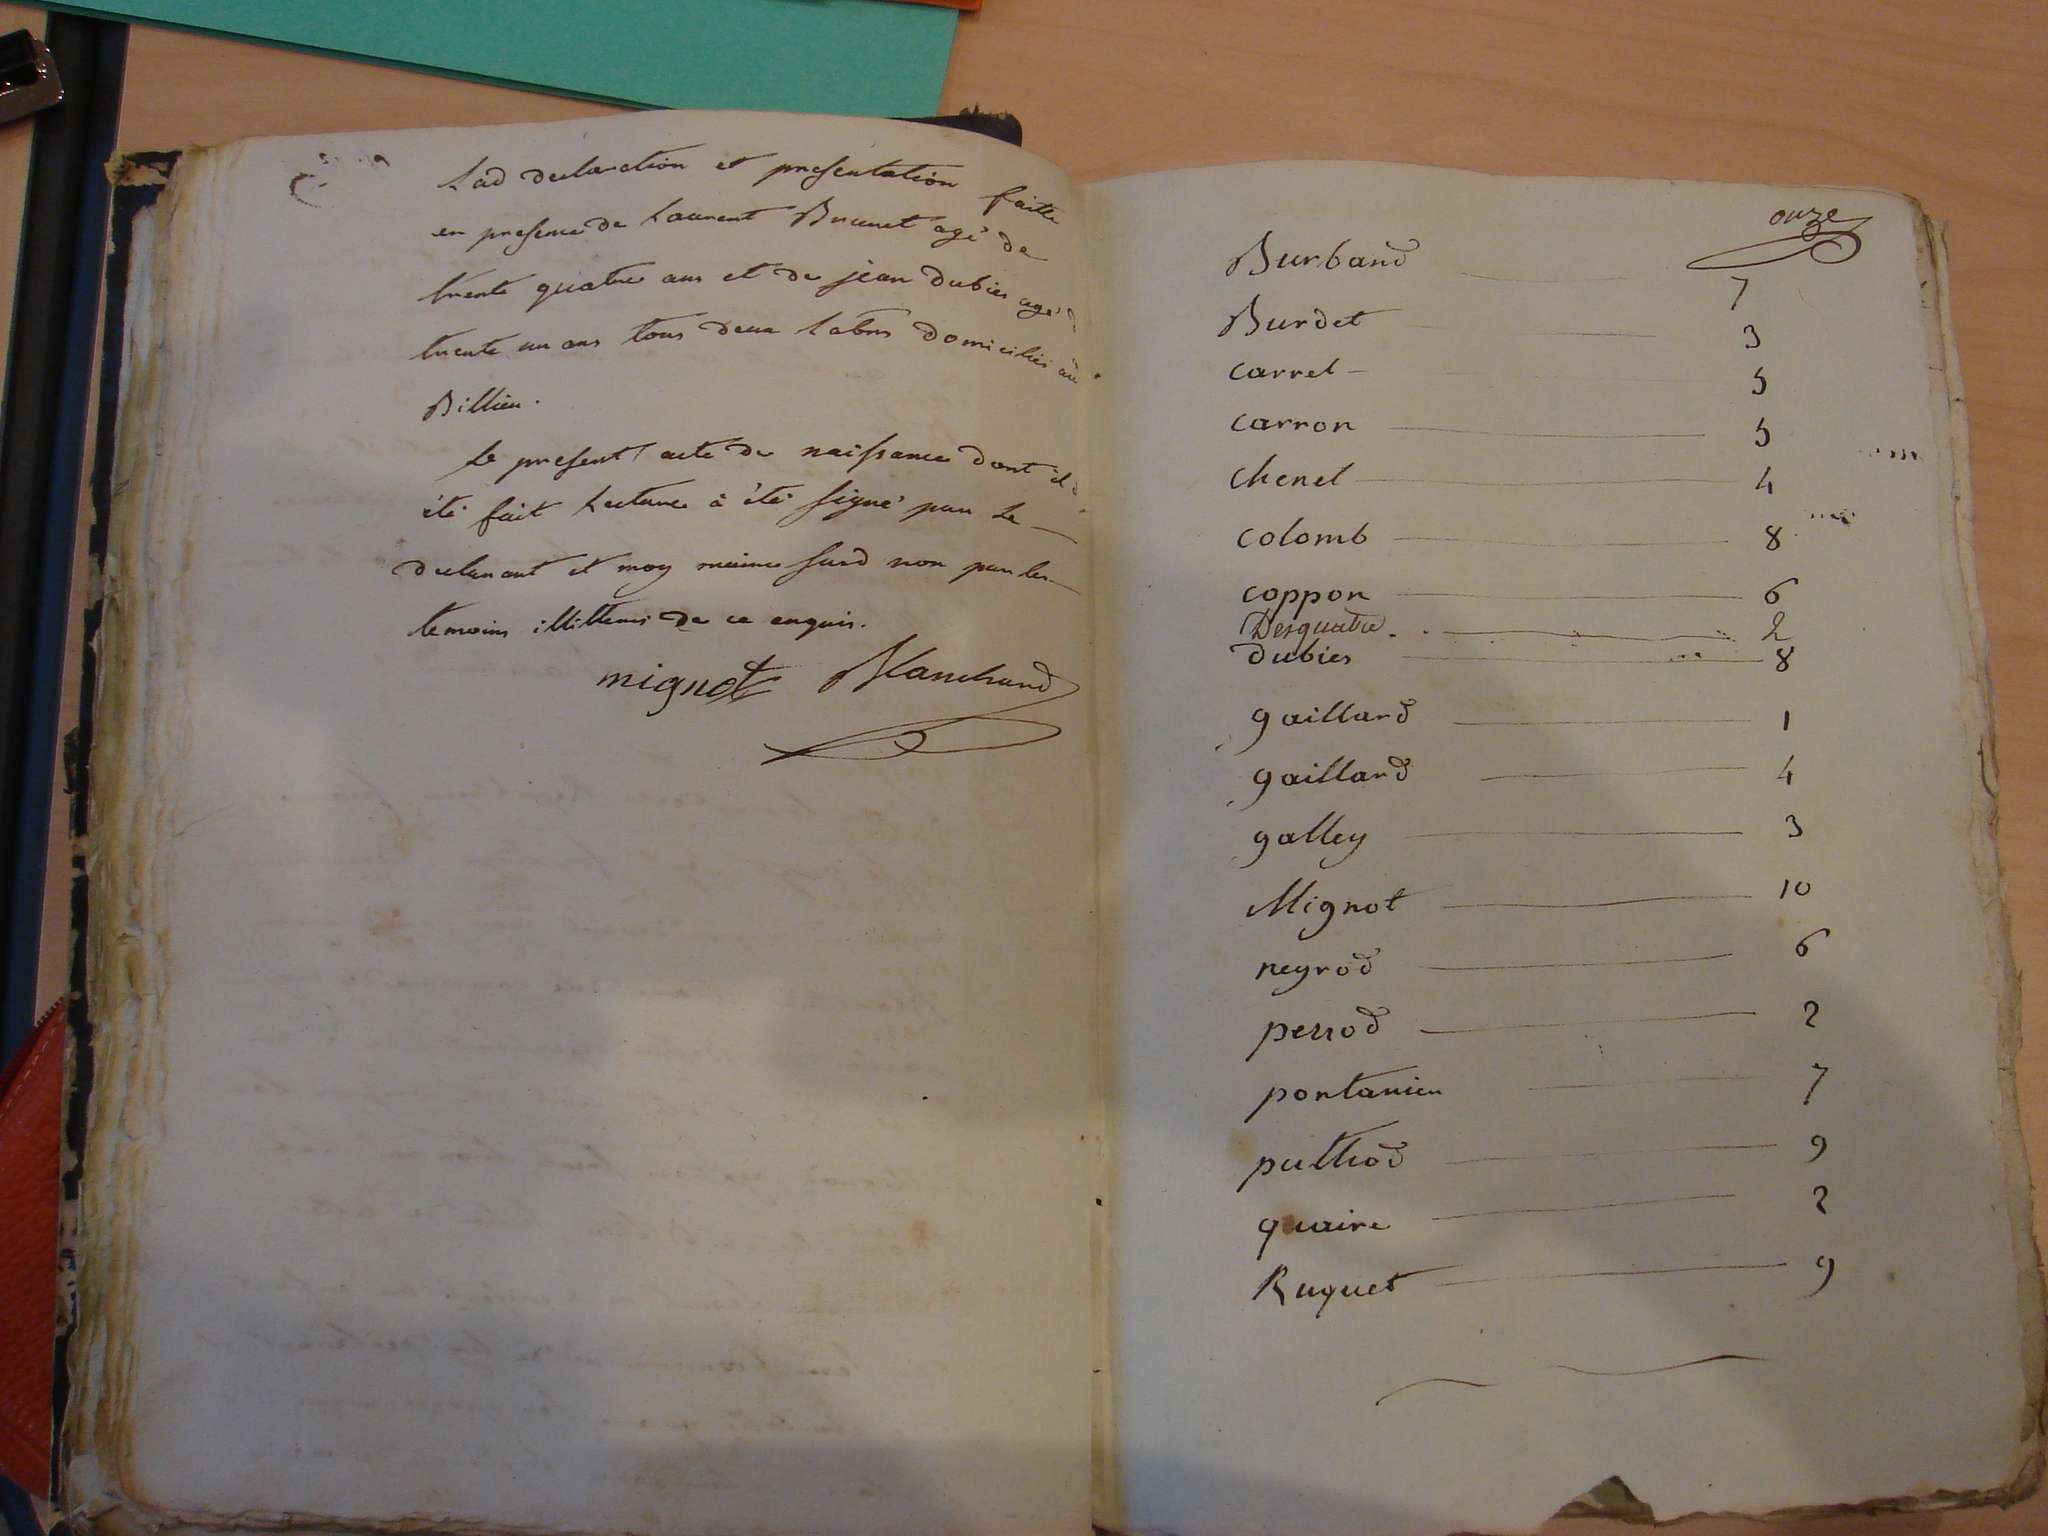 Lad declaration et presentation faitte
en presence de Laurent Brunet agé de
trente quatre ans et de jean dubies agé d
trente un ans tous deux Labrs domiciliés au
Billieu.
Le present acte de naissance dont il a
été fait Lecture à été signé par le
declarant et moy maire susd non par les
temoins illitterés de ce enquis.
mignot Blanchard
onze
Burband 7
Burdet 3
carrel 5
carron 5
chenel 4
colomb 8
coppon 6
Desquatre 2
dubies 8
gaillard 1
gaillard 4
galley 3
Mignot 10
neyrod 6
perrod 2
pontanieu 7
pulliod 9
quaire 2
Ruquet 9